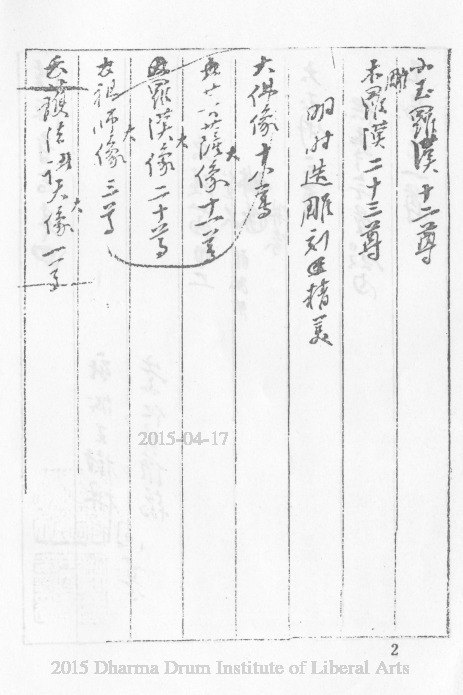 小玉羅漢十二尊
木雕羅漢二十三尊
明時造雕刻精美
大佛像十八尊
大菩薩像十一尊
大羅漢像二十尊
大祖師像三尊
大護法天像一尊
2015-04-17
2
2015 Dharma Drum Institute of Liberal Arts